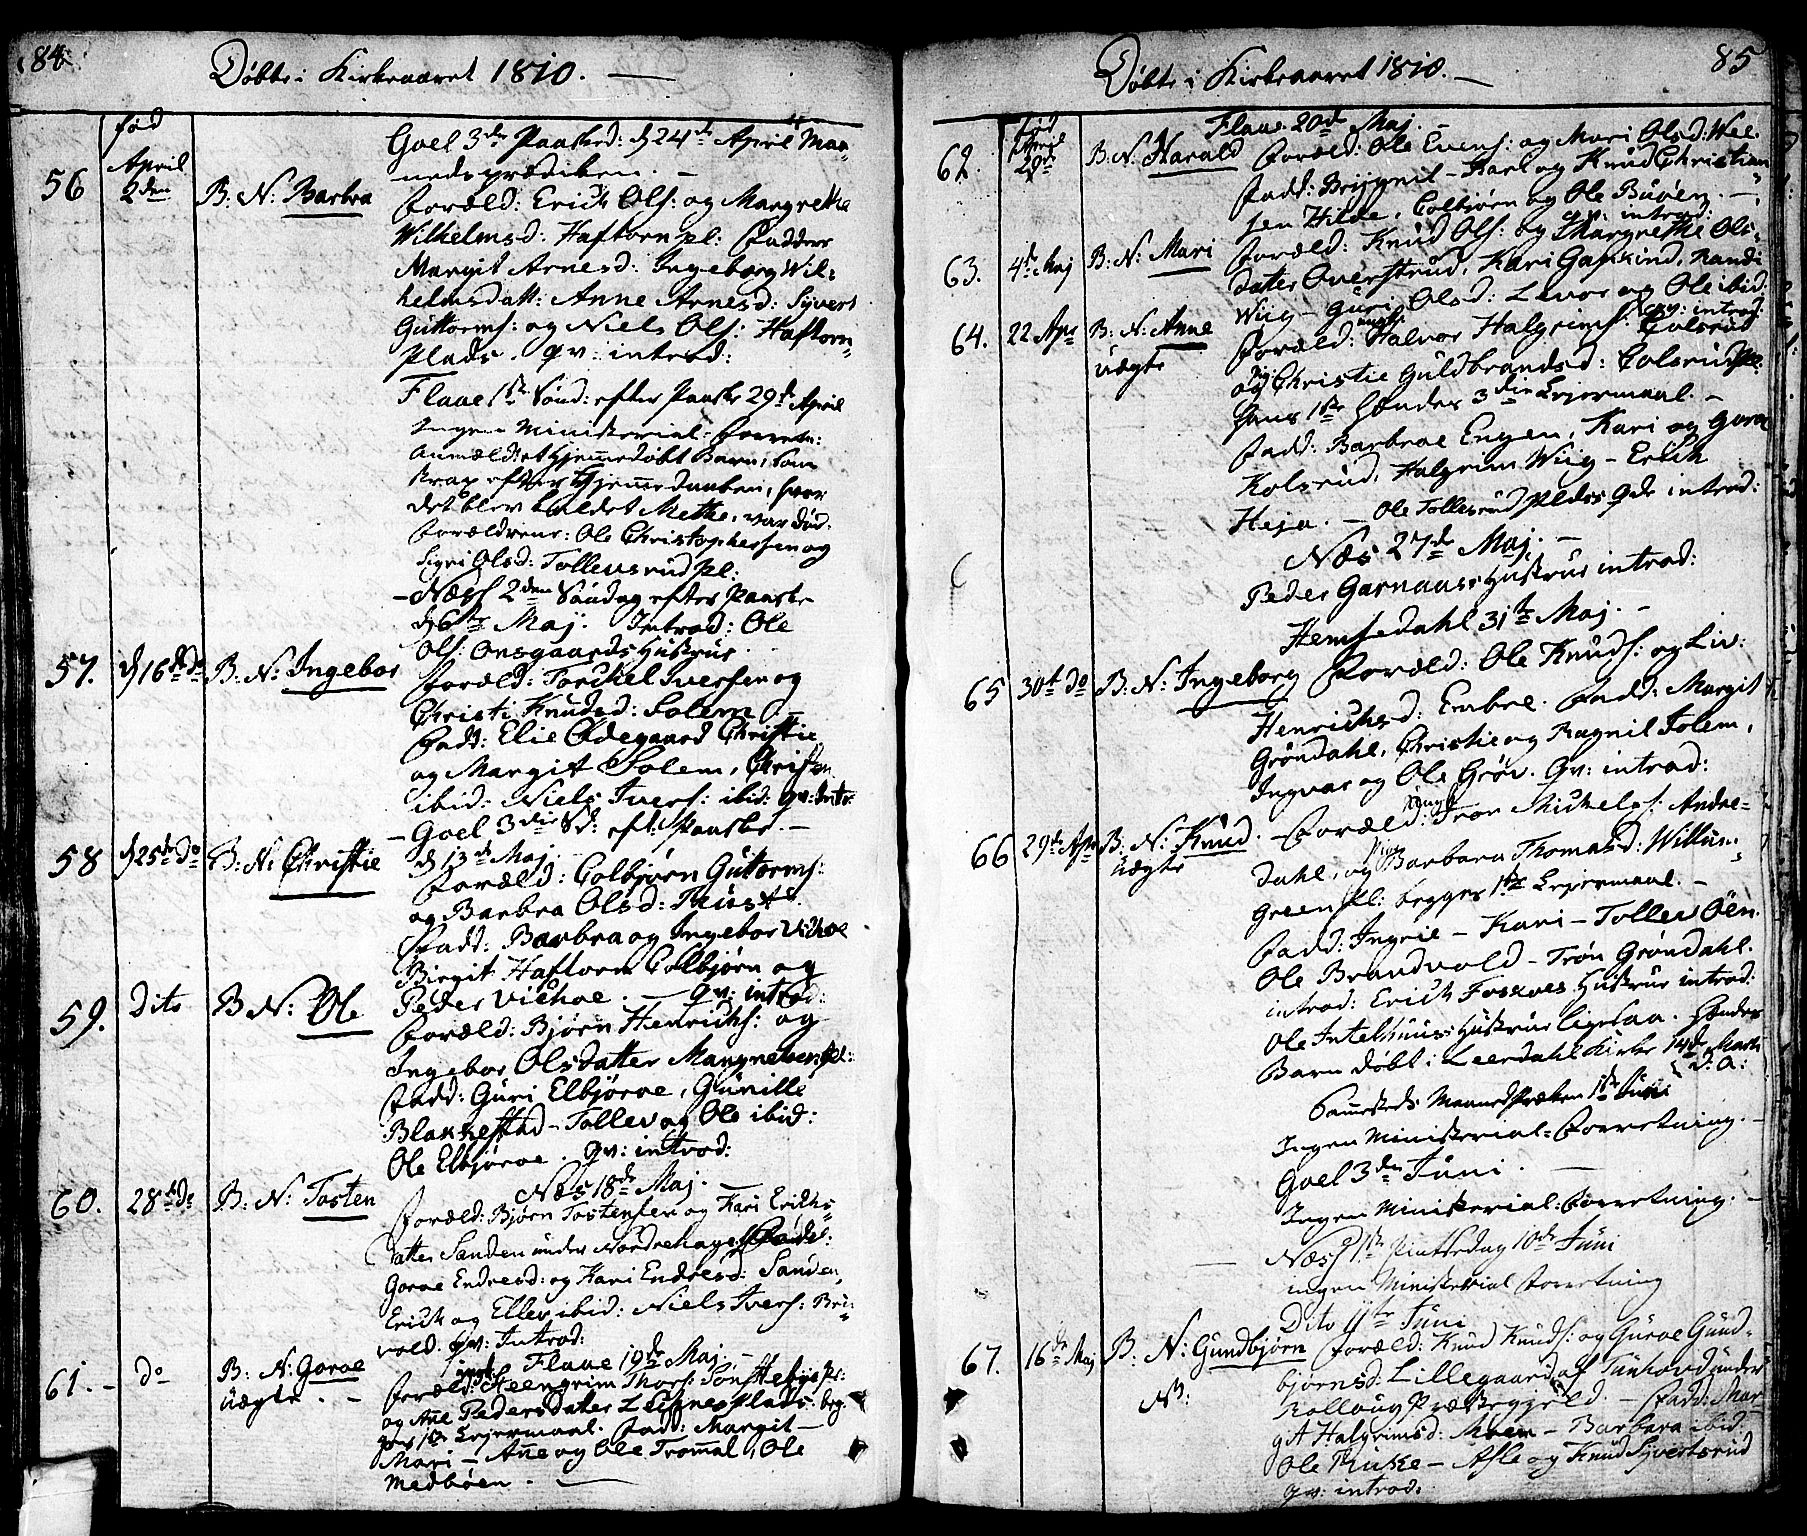 84.
Døbte i Kirkeaaret 1810. —
fød
Goel 3die Paasked: d 24de April Maa-
nedsprædiken. —
56
April
2den
B: N: Barbra
Foræld: Erich Ols: og Margrethe
Wilhelmsd: Haftorn pl: Fadders
Margit Arnesd: Ingeborg Wil-
helmsdatt: Anne Arnesd: Syvert
Guttorms: og Niels Ols: Haftorn-
Plads. qv: introd:
Flaae 1ste Sønd: efter Paaske 29de April
Ingen Ministerial-Forretn:
Anmeldt et Hjemmedøbt Barn, som
strax efter Hjemmedaaben, hvor
det blev kaldet Mette, var død.
Forældrene: Ole Christophersen og
Sigri Olsd: Tollevsrud pl:
— Næss 2den Søndag efter Paaske
d 6te Maj. Introd: Ole
Ols: Onsgaards Hustrue.
57.
d 16de do
B: N: Ingebor
Foræld: Torckel Iversen og
Christi Knudsd: Solem —
Fadd: Elie Ødegaard Christie
og Margit Solem, Christen
ibid: Niels Ivers: ibid: qv: Intr:
— Goel 3die Sd: eft: Paaske. —
d 13de Maj —
58
d 25de do
B: N: Christie
Foræld: Colbjørn Guttorms:
og Barbra Olsd: Thust
Fadd: Barbra og Ingebor Vichoe
Birgit Haftorn Colbjørn og
Peder Vichoe. — qv: introd:
59.
Dito
B N: Ole
Foræld: Bjørn Henrichs: og
Ingebor Olsdatter
Fadd: Guri Elbjøroe, Gunille
Blakkestad — Tollev og Ole ibid:
Ole Elbjøroe. qv: introd:
Næs 18de Maj. —
60.
28de do
B: N: Tosten
Foræld: Bjørn Tostensen og Kari Erichs-
datter Sanden under Nordrehagen Faddel:
Goroe Endresd: og Kari Endresd: Sanden,
Erich og Ellev ibid: Niels Ivers: Bru-
vold. qv: Introd:
Flaae 19de Maj. —
61. —
do
B: N: Goroe
Uægte. —
Foræld: Heengrim Thors: Søn
og Ane Pedersdatter Liisnes plads. beg-
ges 1ste Lejermaal. Fadd: Margit —
Mari — Ane og Ole Trommal, Ole
Medbøen. —
85
Døbte i Kirkeaaret 1810. —
Flaae 20de Maj. —
62.
fød
April
29de
B: N: Harald
Foræld: Ole Evens: og Mari Olsd: Wee.
Fadd: Brijgnil — Kari og Knud Christian-
sen Hilde, Colbjørn og Ole Buøen. —
qv: introd:
63.
4de Maj
B: N: Mari
Foræld: Knud Ols: og Margrethe Ols-
dater Overstrud, Kari Gaskind, Randi
Wiig — Guri Olsd: Levor og Ole ibid:
qv: introd:
64.
22 Apr
B: N: Anne
Uægte
Foræld: Halvor Halgrims: Colsrud
og Christie Guldbrandsd: Colsrud pl:
hans 1ste hendes 3die Lejermaal. —
Fadd: Barbroe Engen, Kari og Goroe
Kolsrud, Halgrim Wiig — Erich
Heja. — Ole Tollesrud plds Qde introd:
Næs 27de Maj. —
Peder Garnaas Hustrue introd:
Hemsedahl 31te Maj —
65
30te do
B: N: Ingeborg
Foræld: Ole Knuds: og Liv:
Henrichsd: Embre. Fadd: Margit
Grøndahl, Christie og Ragnil Jolem,
Ingvar og Ole Grøv. qv: introd:
66
29de Apr
B: N: Knud.
Uægte
Foræld: Tron Mickels: Andre-
dahl, og Barbara Thomasd: Willum-
Green pl: begges 1ste Lejermaal. —
Fadd: Ingrie — Kari — Tollev Øen.
Ole Brandvold — Trøn Grøndahl.
introd: Erich Foskoes Hustrue introd:
Ole Intelhuus Hustrue ligesaa. hendes
Barn døbt i Leerdahl Kirke 14de Marti
d: a:
Sammesteds Maanedspræken 1ste Juni
Ingen Ministerial-Forretning. —
Goel 3de Juni. —
Ingen Ministerial-Forretning. —
Næss 1ste Pintsedag 10de Juni
ingen Ministerial Forretning
Dito 11te Juni
67.
16de Maj
B. N: Gundbjørn
NB:
Foræld: Knud Knuds: og Guroe Gund-
bjørnsd: Lillegaard af Tunhovd under
Rolloug Præstegjeld — Fadd: Mar-
git Halgrimsd: Moen — Barbara ibid:
Ole Ruke — Asle og Knud Syvertsrud
qv: introd: